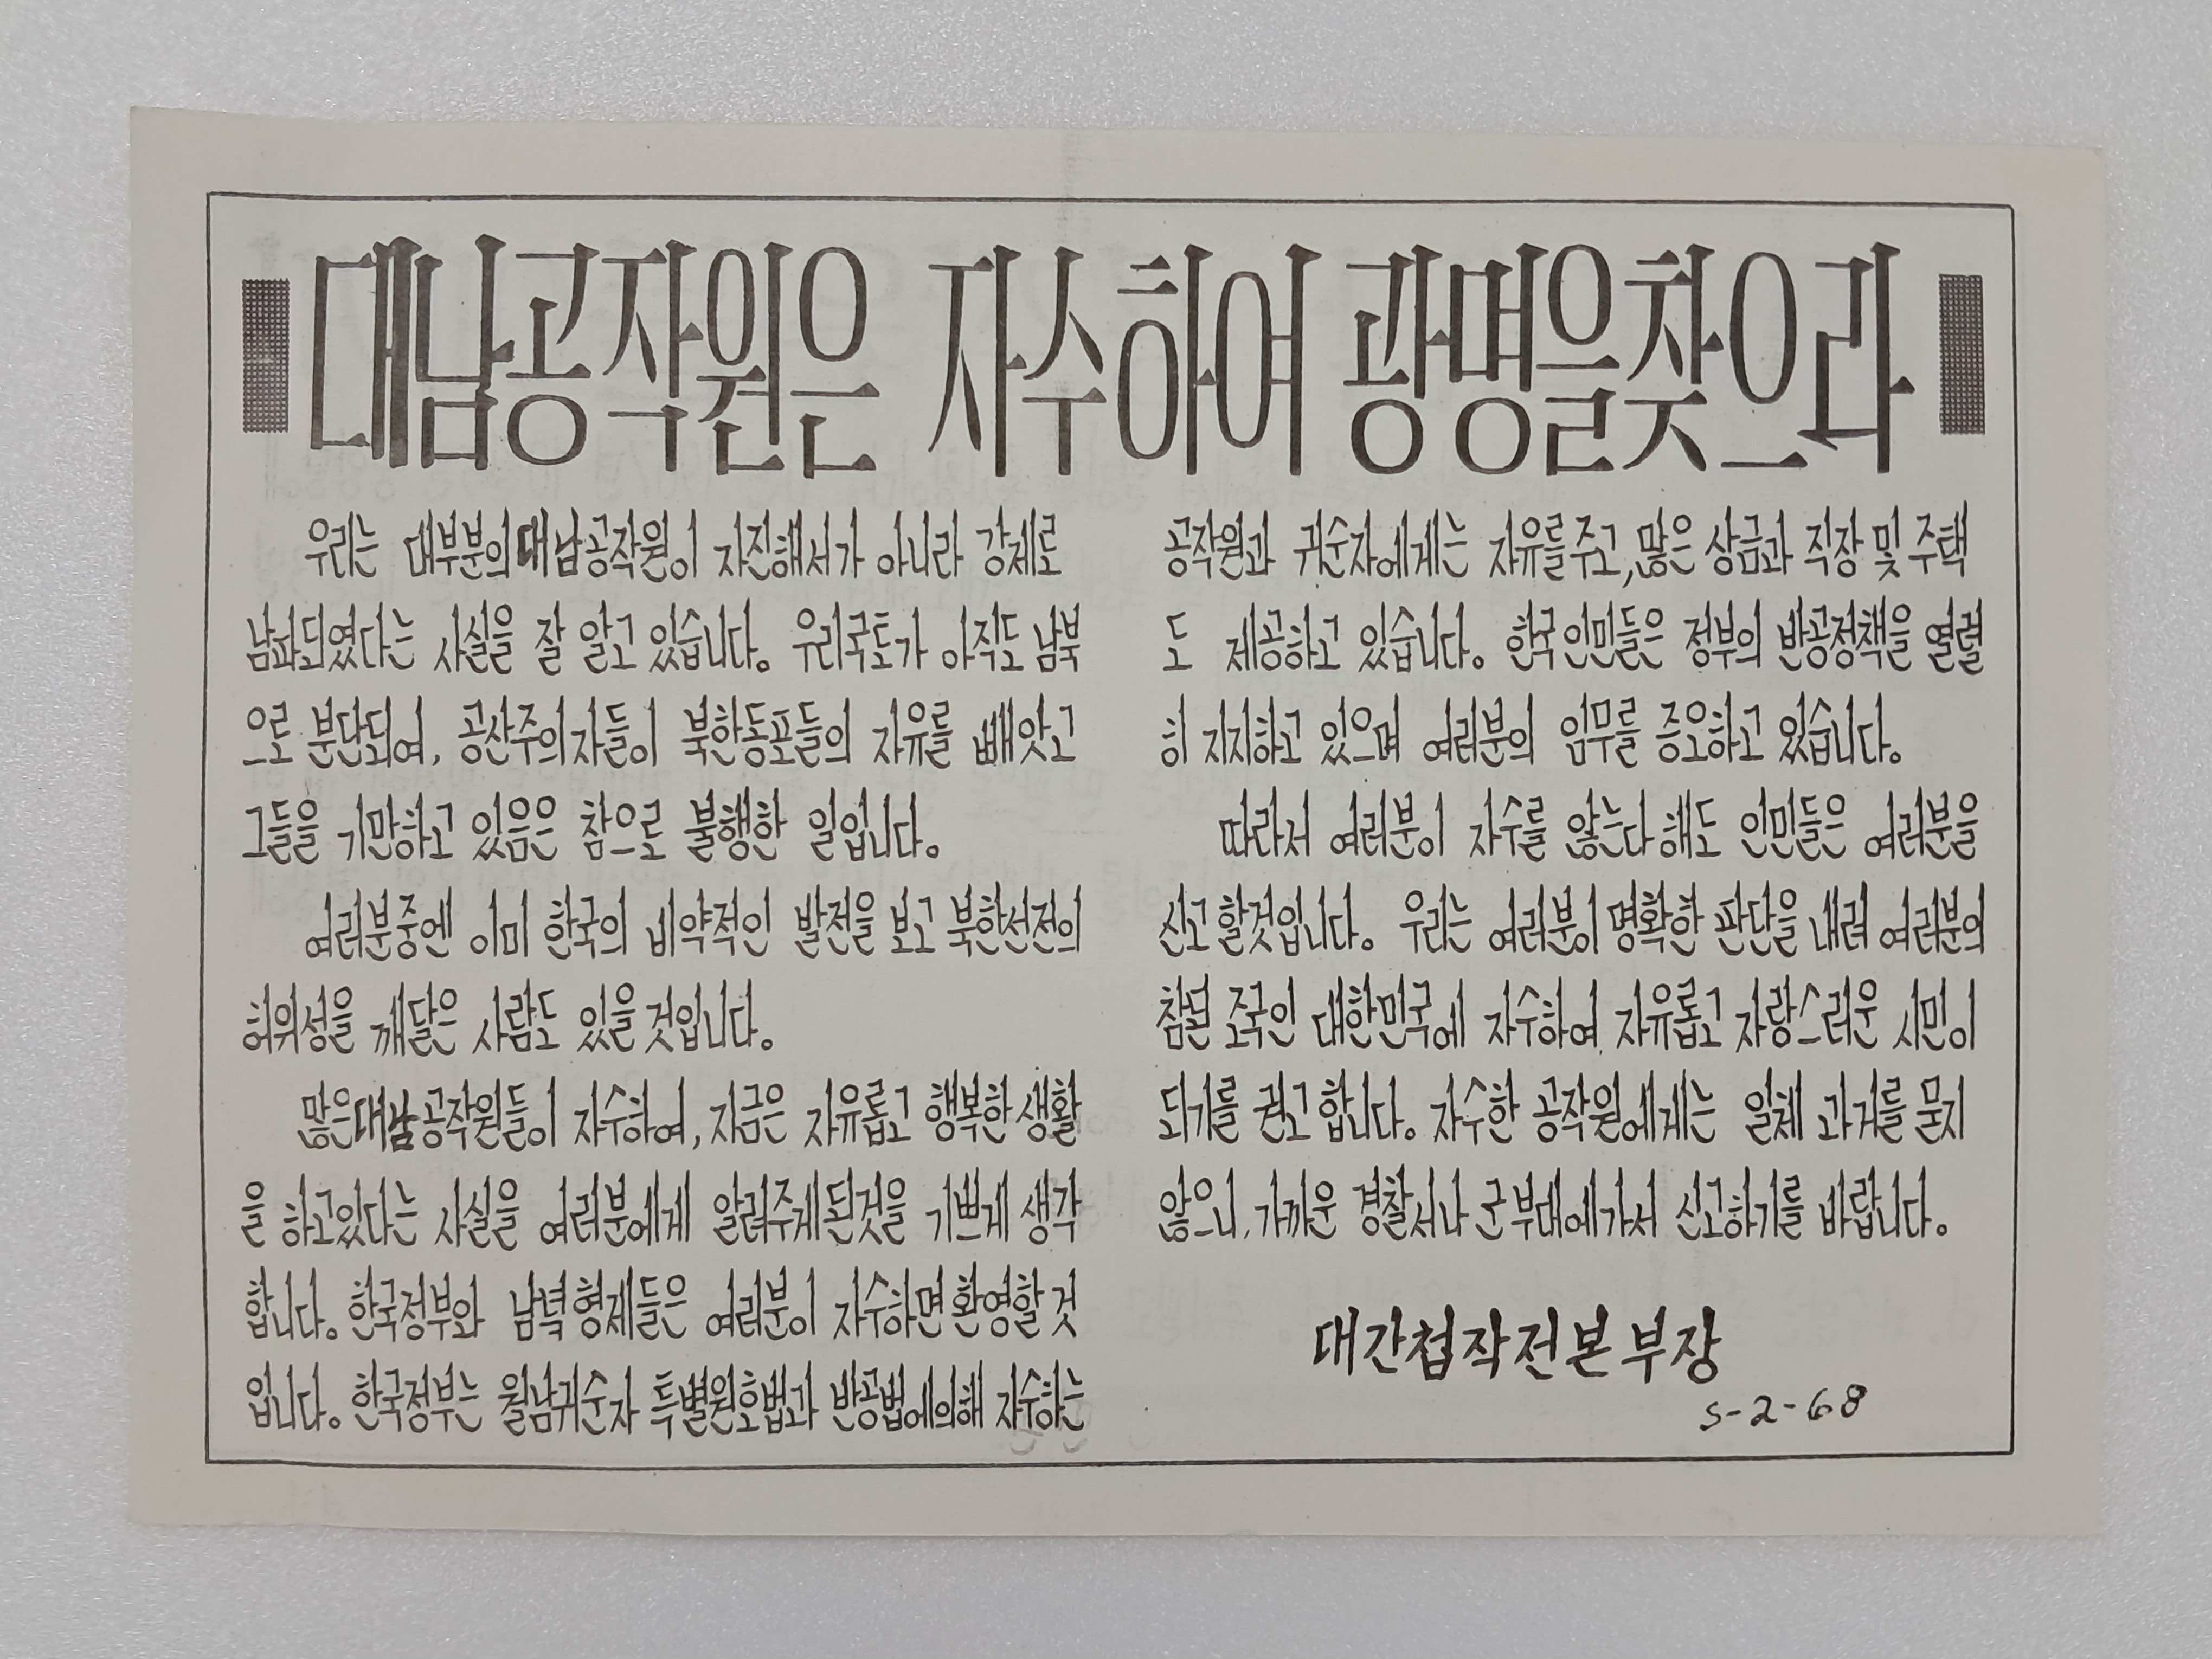 대남공작원은 자수하여 광명을찾으라
우리는 대부분의대남공작원이 자진해서가 아니라 강제로
남파되였다는 사실을 잘 알고 있습니다. 우리국토가 아직도 남북
으로 분단되여, 공산주의자들이 북한동포들의 자유를 빼앗고
그들을 기만하고 있음은 참으로 불행한 일입니다.
여러분중엔 이미 한국의 비약적인 발전을 보고 북한선전의
허위성을 깨달은 사람도 있을 것입니다.
많은대남공작원들이 자수하여, 지금은 자유롭고 행복한 생활
을 하고있다는 사실을 여러분에게 알려주게된것을 기쁘게 생각
합니다. 한국정부와 남녘형제들은 여러분이 자수하면 환영할 것
입니다. 한국정부는 월남귀순자 특별원호법과 반공법에의해 자수하는
공작원과 귀순자에게는 자유를주고, 많은 상금과 직장 및 주택
도 제공하고 있습니다. 한국인민들은 정부의 반공정책을 열렬
히 지지하고 있으며 여러분의 임무를 증오하고 있습니다.
따라서 여러분이 자수를 않는다해도 인민들은 여러분을
신고할것입니다. 우리는 여러분이 명확한 판단을 내려 여러분의
참된 조국인 대한민국에 자수하여 자유롭고 자랑스러운 시민이
되기를 권고합니다. 자수한 공작원에게는 일체 과거를 묻지
않으니, 가까운 경찰서나 군부대에가서 신고하기를 바랍니다.
대간첩작전본부장
S-2-68